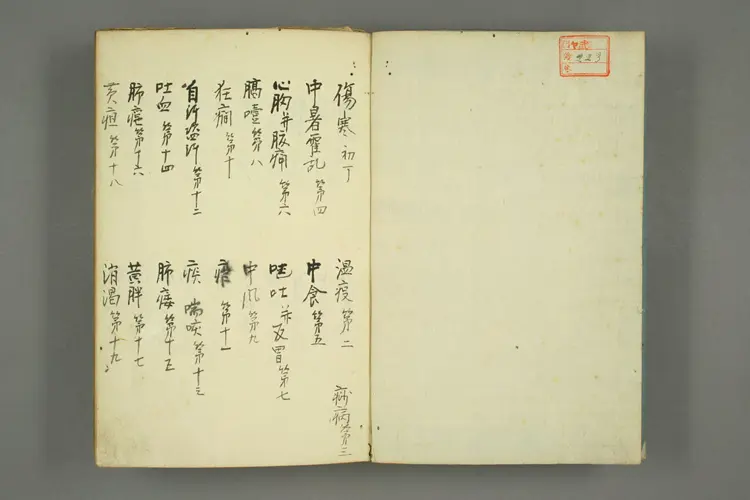 傷寒 初丁
温疫 第二
病 第三
中暑霍乱 第四
中食 第五
心胸并腹痛 第六
吐 并 反胃 第七
膈噎 第八
中风 第九
狂癇 第十
第十一
自汗盗汗 第十二
痰 喘咳 第十三
吐血 第十四
肺痿 第十五
肺癰 第十六
黄胖 第十七
黄疸 第十八
消渇 第十九